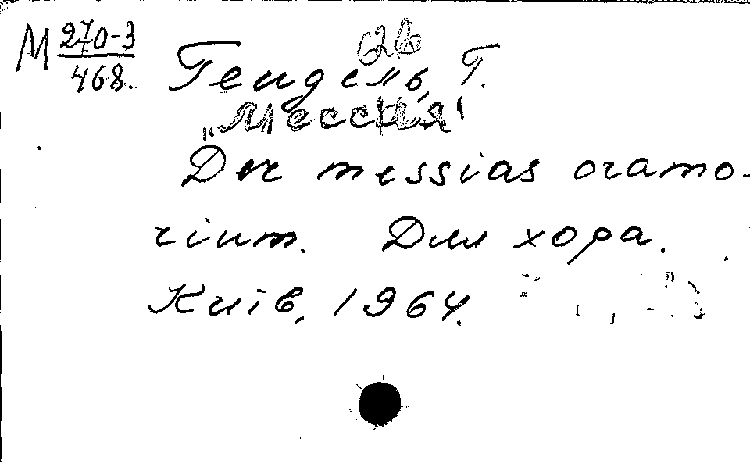 М 270-3
468.
26
Гендель, Г.
„Мессия“
Der messias orato-
rium. Для хора.
Київ, 1964.